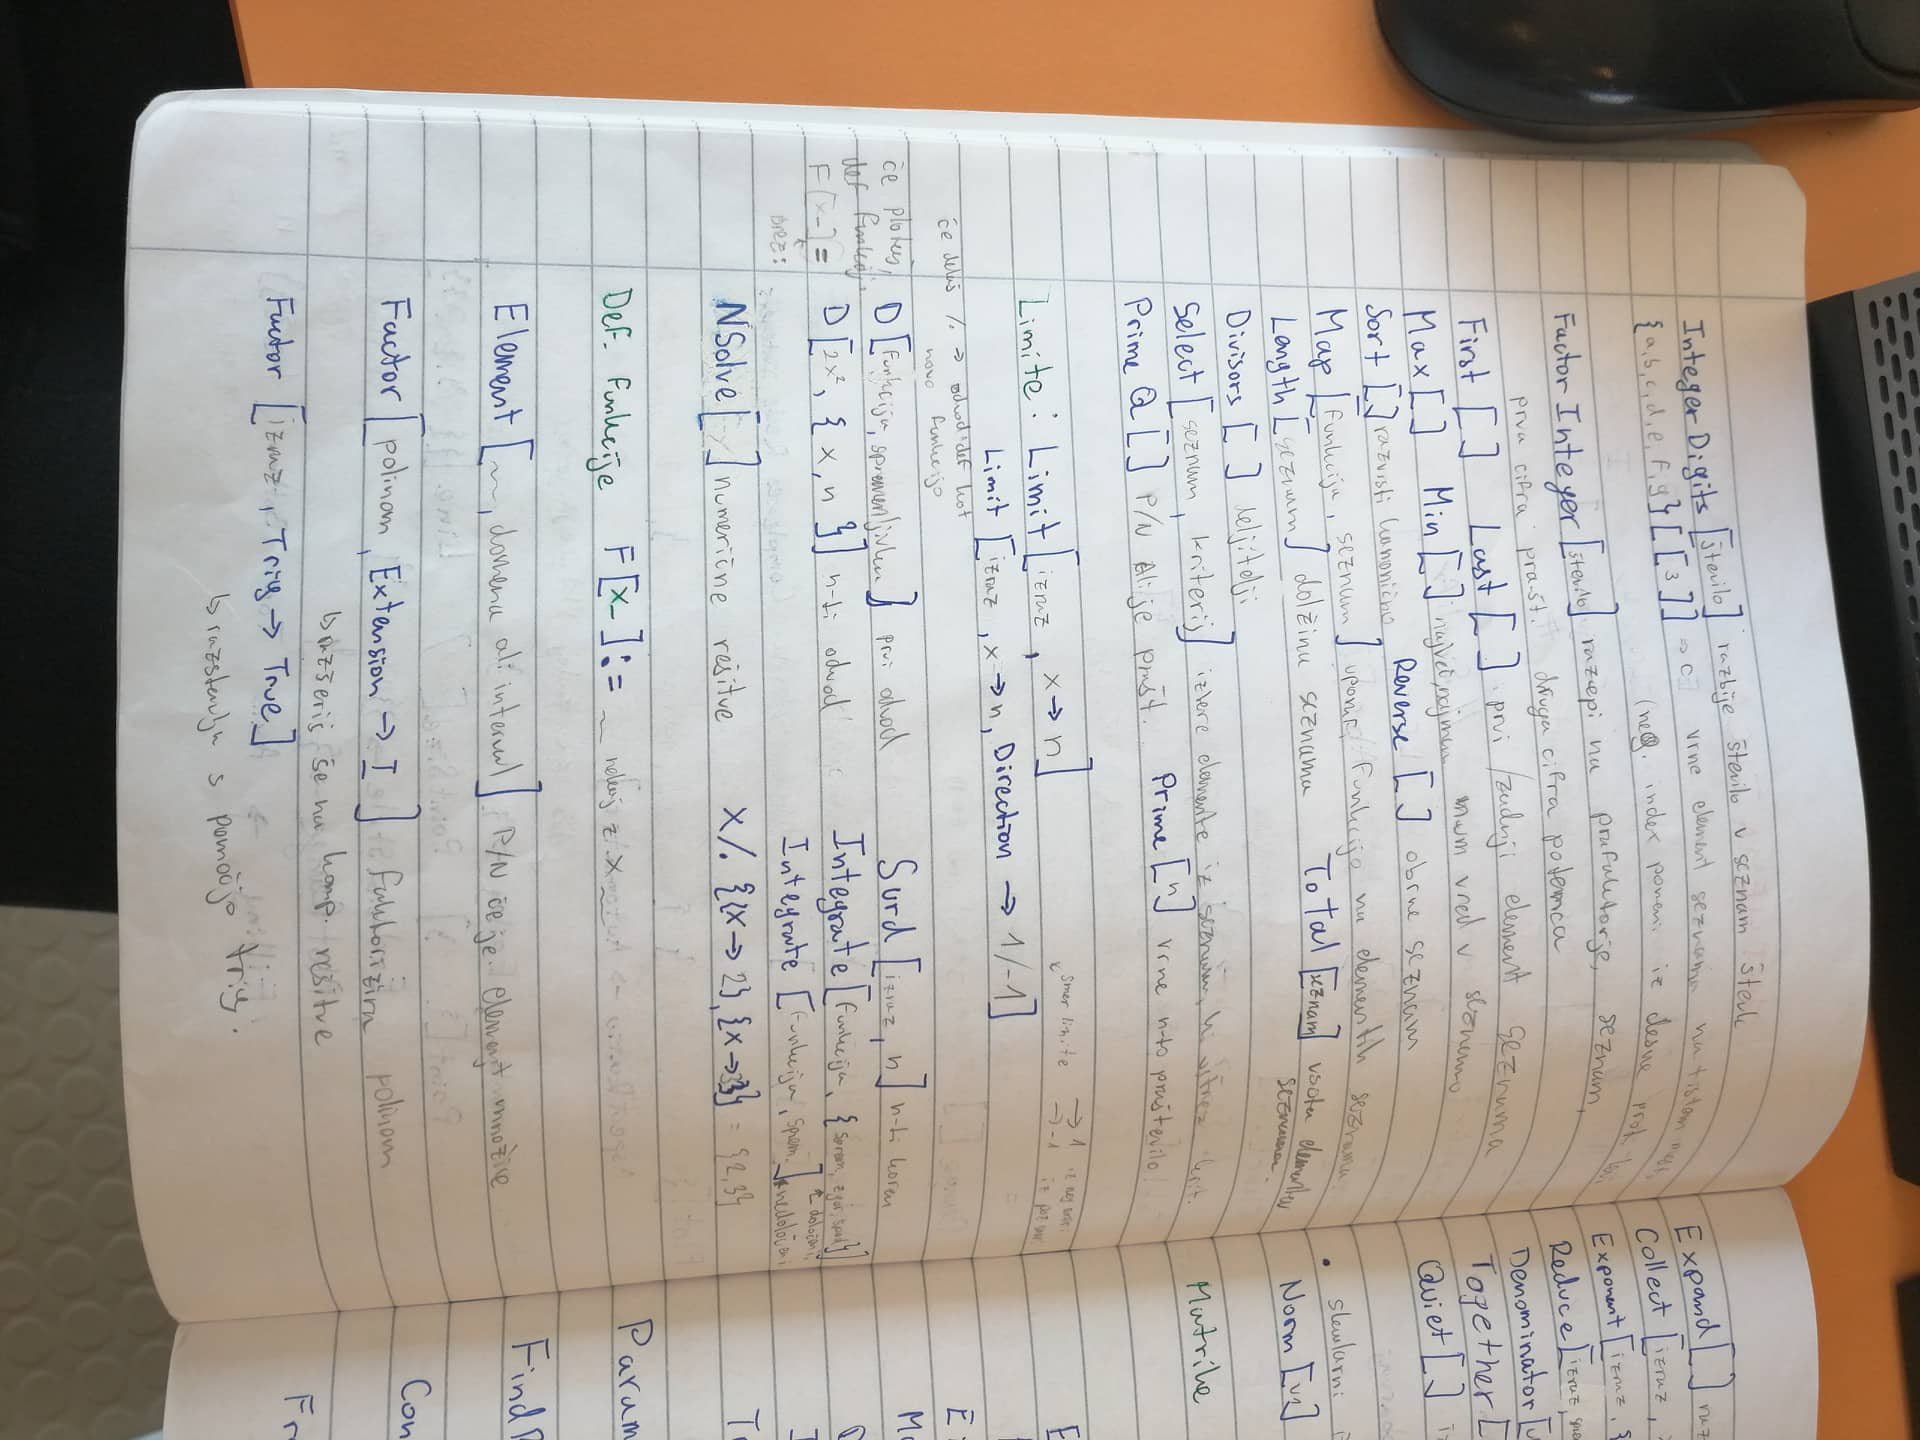 IntegerDigits [število] razbije število v seznam števk
{a,b,c,d,e,f,g}[[3]] → c vrne element seznama na tistem
(neg. index pomeni iz desne proti
FactorInteger [število] razcepi na prafaktorje, seznam,
prva cifra prašt. druga cifra potenca
First [ ] Last [ ] prvi / zadnji element seznama
Max [ ] Min [ ] največ, najmen vred v seznamu
Sort [ ] razvrsti kanonično Reverse [ ] obrne seznam
Map [funkcija, seznam] uporabi funkcijo na elementih seznama
Length [seznam] dolžina seznama Total [seznam] vsota elementov seznama
Divisors [ ] deljitelji
Select [seznam, kriterij] izbere elemente iz seznam, ki ustrez krit.
PrimeQ [ ] P/N ali je prašt. Prime [n] vrne n-to praštevilo
Limite: Limit [izraz, x→n]
smer limite →1 iz neg smer.
→-1 iz poz smer.
Limit [izraz, x→n, Direction → 1/-1]
če delaš /. → odvod def kot
novo funkcijo
če plotaš,
def funkcij.
F[x_] =
brez :
D [funkcija, spremenljivka] prvi odvod Surd [izraz, n] n-ti koren
D [2x², {x, n}] n-ti odvod Integrate [funkcija, {sprem, zgor, spod}] ← določeni
Integrate [funkcija, sprem.] ← nedoločeni
NSolve [ ] numerične rešitve x/. {{x→2},{x→3}} = {2,3}
Def. funkcije F[x_] := ~ nekaj z x ~
Element [~, domena ali interval] P/N če je element množice
Factor [polinom, Extension → I] faktorizira polinom
↳ razširiš še na komp. rešitve
Factor [izraz, Trig → True]
↳ razstavlja s pomočjo trig.
Expand [ ]
Collect [izraz,
Exponent [izraz, {
Reduce [izraz,
Denominator [
Together [
Quiet [ ]
• skalarni
Norm [v]
Matrike
Param
Find
Con
Fr